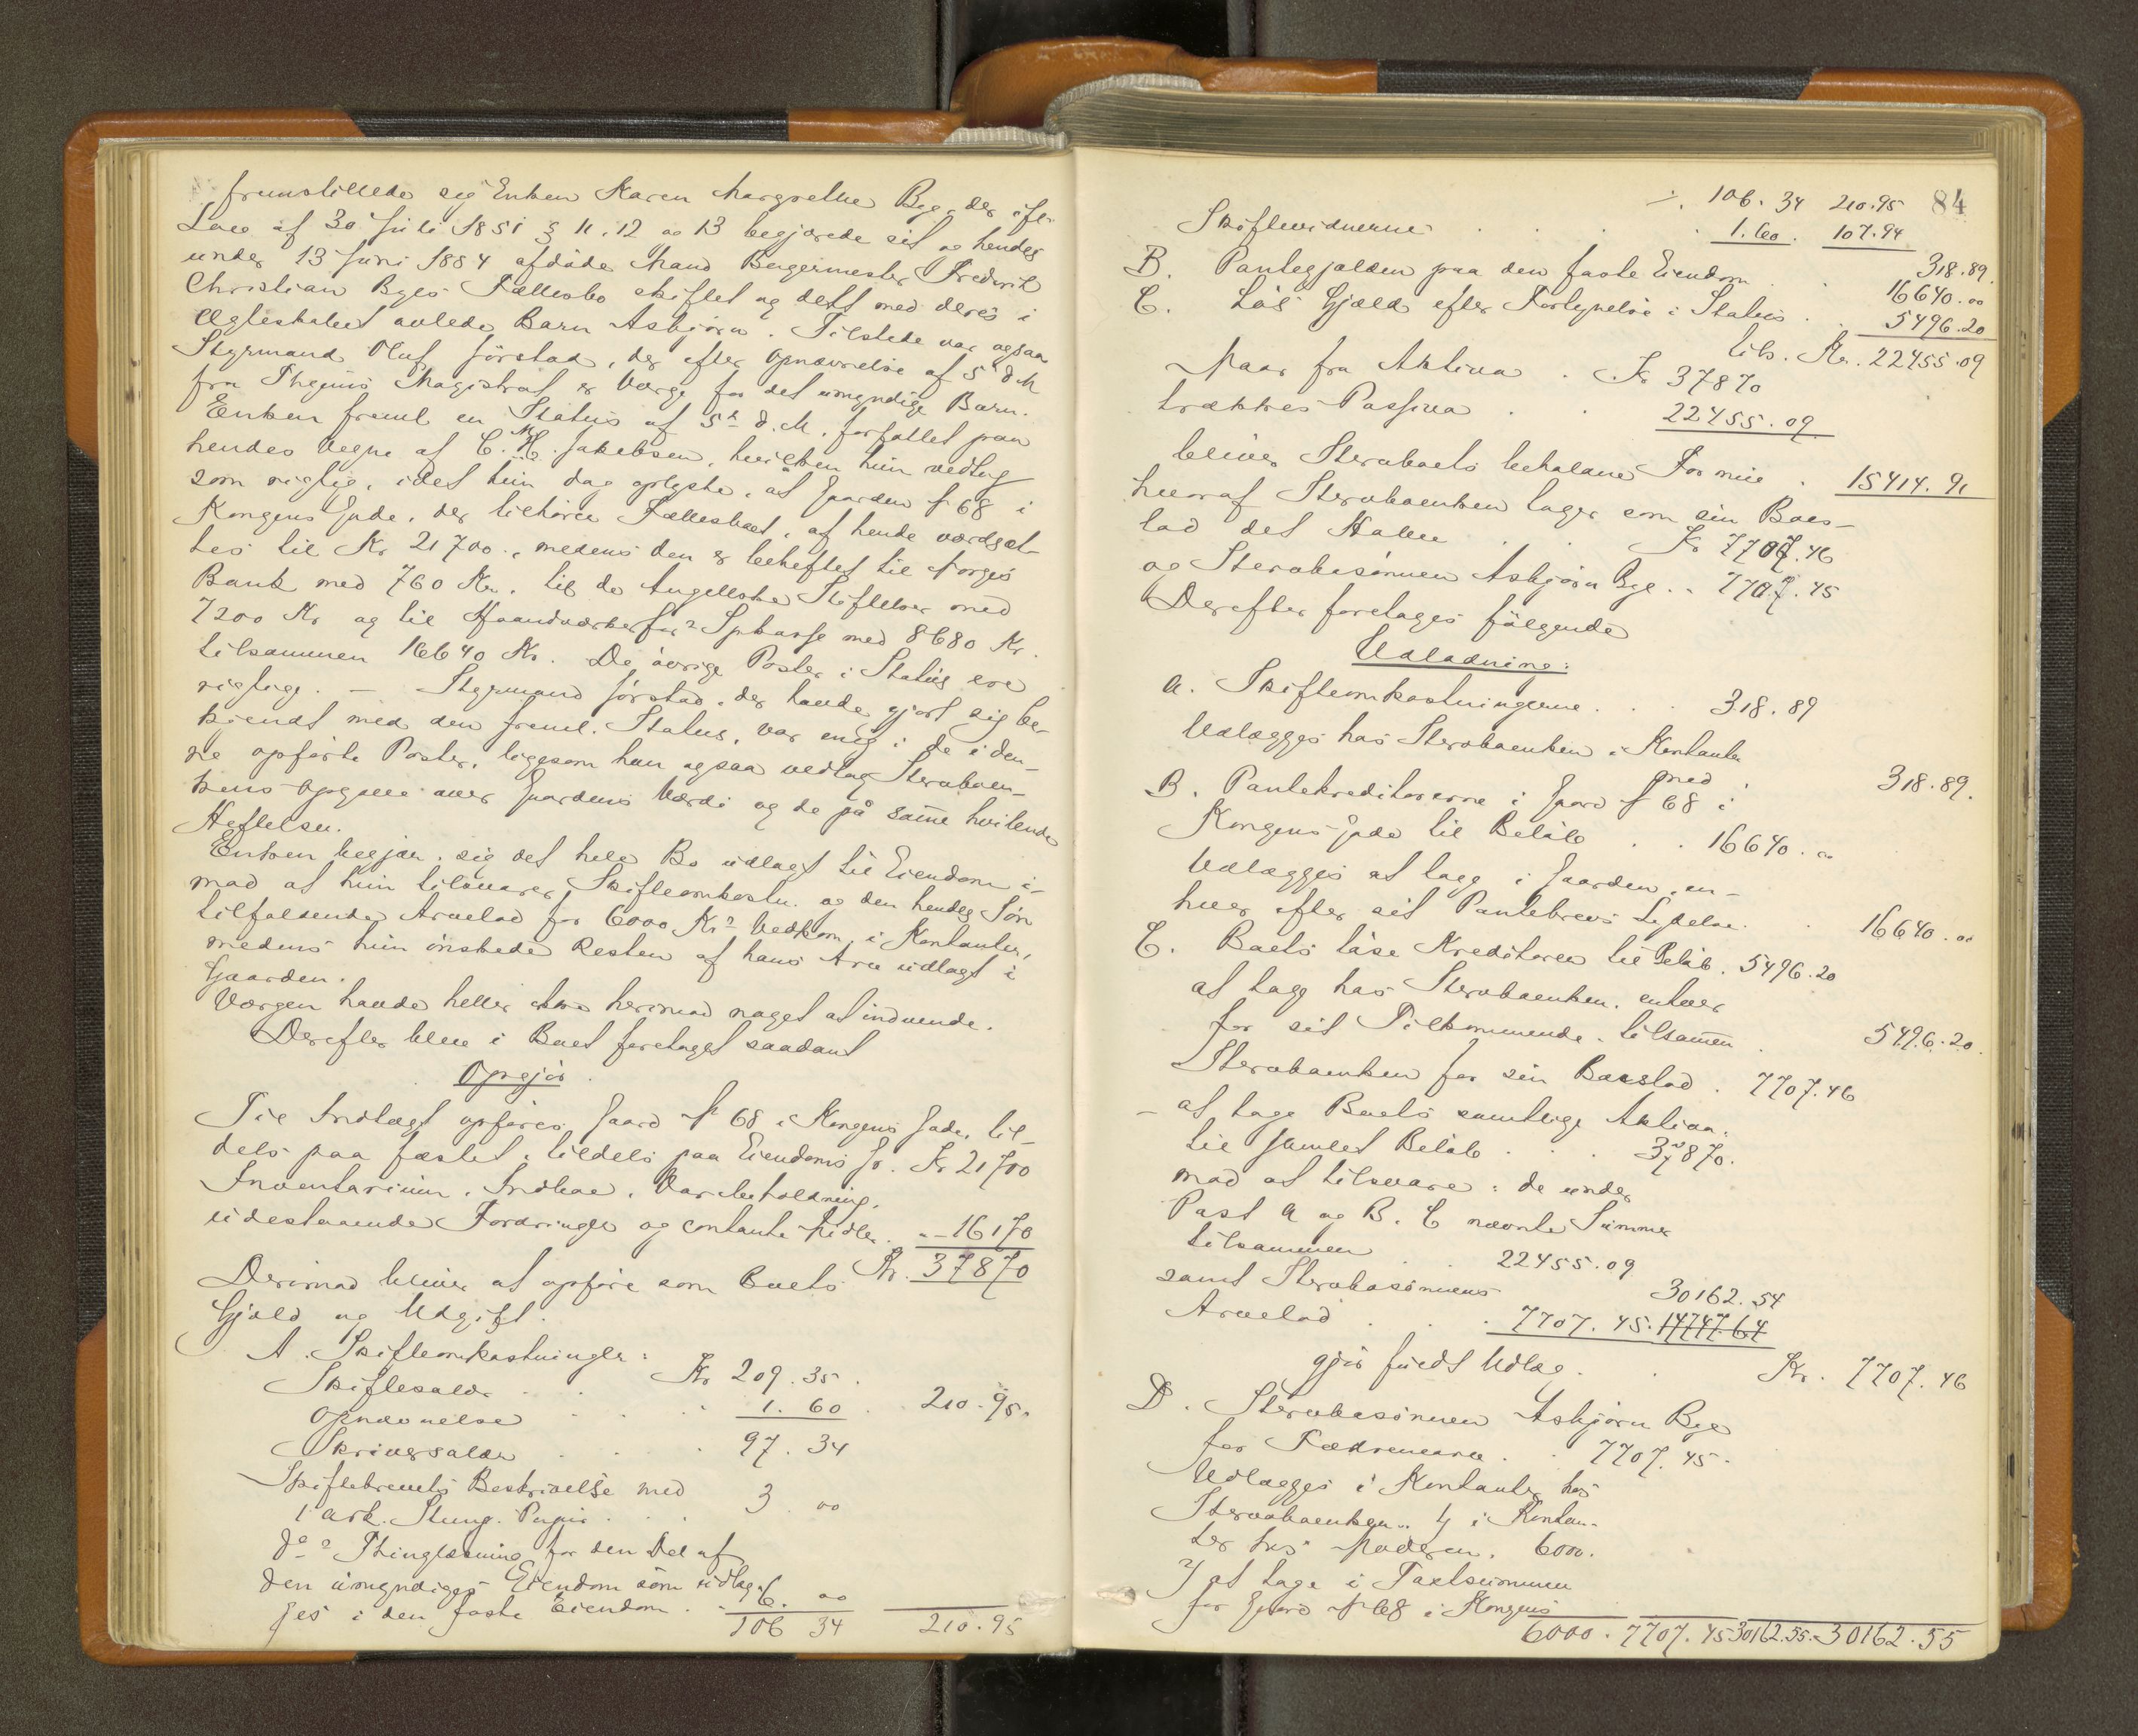 fremstillede sig Enken Karen Margrethe Bye, der ifl.
Lov af 30 Juli 1851 § 11, 12 og 13 begjærede sit og hendes
under 13 Juni 1884 afdøde Mand Bagermester Fredrik
Christian Byes Fællesbo skiftet og delt med deres i
Ægteskabet avlede Barn Asbjørn. Tilstede var ogsaa
Styrmand Oluf Jørstad, der efter Opnævnelse af 5te d. M
fra Thejms Magistrat er Værge for det umyndige Barn.
Enken freml. en Status af 5te d. M. forfattet paa
hendes Vegne af C. M. Jakobsen, hvilken hun vedtog
som rigtig, idet hun dog oplyste, at Gaarden № 68 i
Kongens Gade, der tilhører Fællesboet, af hende værdsæt-
tes til Kr 21700, medens den er beheftet til Norges
Bank med 760 Kr, til de Angellske Stiftelser med
7200 Kr og til Haandværkerfor. Spbarsse med 8680 Kr.
tilsammen 16640 Kr. De øvrige Poster i Status ere
rigtige. — Styrmand Jørstad, der havde gjort sig be-
kjendt med den freml. Status, var enig i de i den-
ne opførte Poster, ligesom han ogsaa vedtog Stervboen-
kens Opgave over Gaardens Værdi og de på samme hvilende
Heftelser.
Enken begjær. sig det hele Bo udlagt til Eiendom i-
mod at hun tilsvarer Skifteomkostn. og den hendes Søn
tilfaldende Arvelod for 6000 Krs Vedkom. i Kontanter,
medens hun ønskede Resten af hans Arv udlagt i
Gaarden.
Værgen havde heller ikke herimod noget at indvende.
Derefter blev i Boet foretaget saadant
Opgjør.
Til Indtægt opføres Gaard № 68 i Kongens Gade, til-
dels paa fæstet, tildels paa Eiendoms Gr. Kr 21700
Inventarium, Indboe, Varebeholdning,
udestaaende Fordringer og contante Midler. " – 16170
Kr. 37870
Derimod bliver at opføre som Boets
Gjæld og Udgift.
A. Skifteomkostninger:
Skiftesalær . . Kr 209.35.
Opnævnelse . . . 1.60 . 210.95.
Skriversalær . . . 97.34
Skiftebrevets Beskrivelse med
1 Ark. Stemp. Papir . . . 3.00
do Thinglæsning for den Del af
den umyndiges Eiendom som udlæg-
ges i den faste Eiendom . . 6.00
106 34 210.95
84
÷. 106.34 210.95
Skiftevidnerne . . . . 1.60. 107.94
318.89.
B. Pantegjælden paa den faste Eiendom . . 16640.00
C. Løs Gjæld efter Fortegnelse i Status . . 5496.20
tils. Kr. 22455.09
Naar fra Aktiva . Kr 37870
trækkes Passiva . . 22455.09
bliver Stervboets beholdne Formue . 15414.91
hvoraf Stervboenken tager som sin Boes-
lod det Halve . . Kr 7707.46
og Stervbosønnen Asbjørn Bye . " 7707.45
Derefter foretages følgende
Udlodning:
A. Skifteomkostningerne . . . 318.89
Udlægges hos Stervboenken i Kontanter
med . 318.89.
B. Pantekreditorerne i Gaard № 68 i
Kongens Gade til Beløb . . 16640.00
Udlægges at tage i Gaarden, en-
hver efter sit Pantebrevs Lydelse. . 16640.00
C. Boets løse Kreditorer til Beløb. 5496.20
at tage hos Stervboenken, enhver
for sit Tilkommende, tilsammen . 5496.20.
Stervboenken for sin Boeslod . 7707.46
– at tage Boets samtlige Aktiva,
til samlet Beløb . . . 37870.
mod at tilsvare: de under
Post A og B. C nævnte Summer
tilsammen 22455.09
samt Stervbosønnens 30162.54
Arvelod . . . 7707.45. 14747.64
gjør fuldt Udlæg. . Kr. 7707.46
D. Stervbosønnen Asbjørn Bye
for Fædrenearv . . 7707.45.
Udlægges i Kontanter hos
Stervboenken. 1/ i Kontan-
ter hos Moderen. 6000.
2/ at tage i Taxtsummen
for Gaard № 68 i Kongens
6000. 7707.45 30162.55. 30162.55